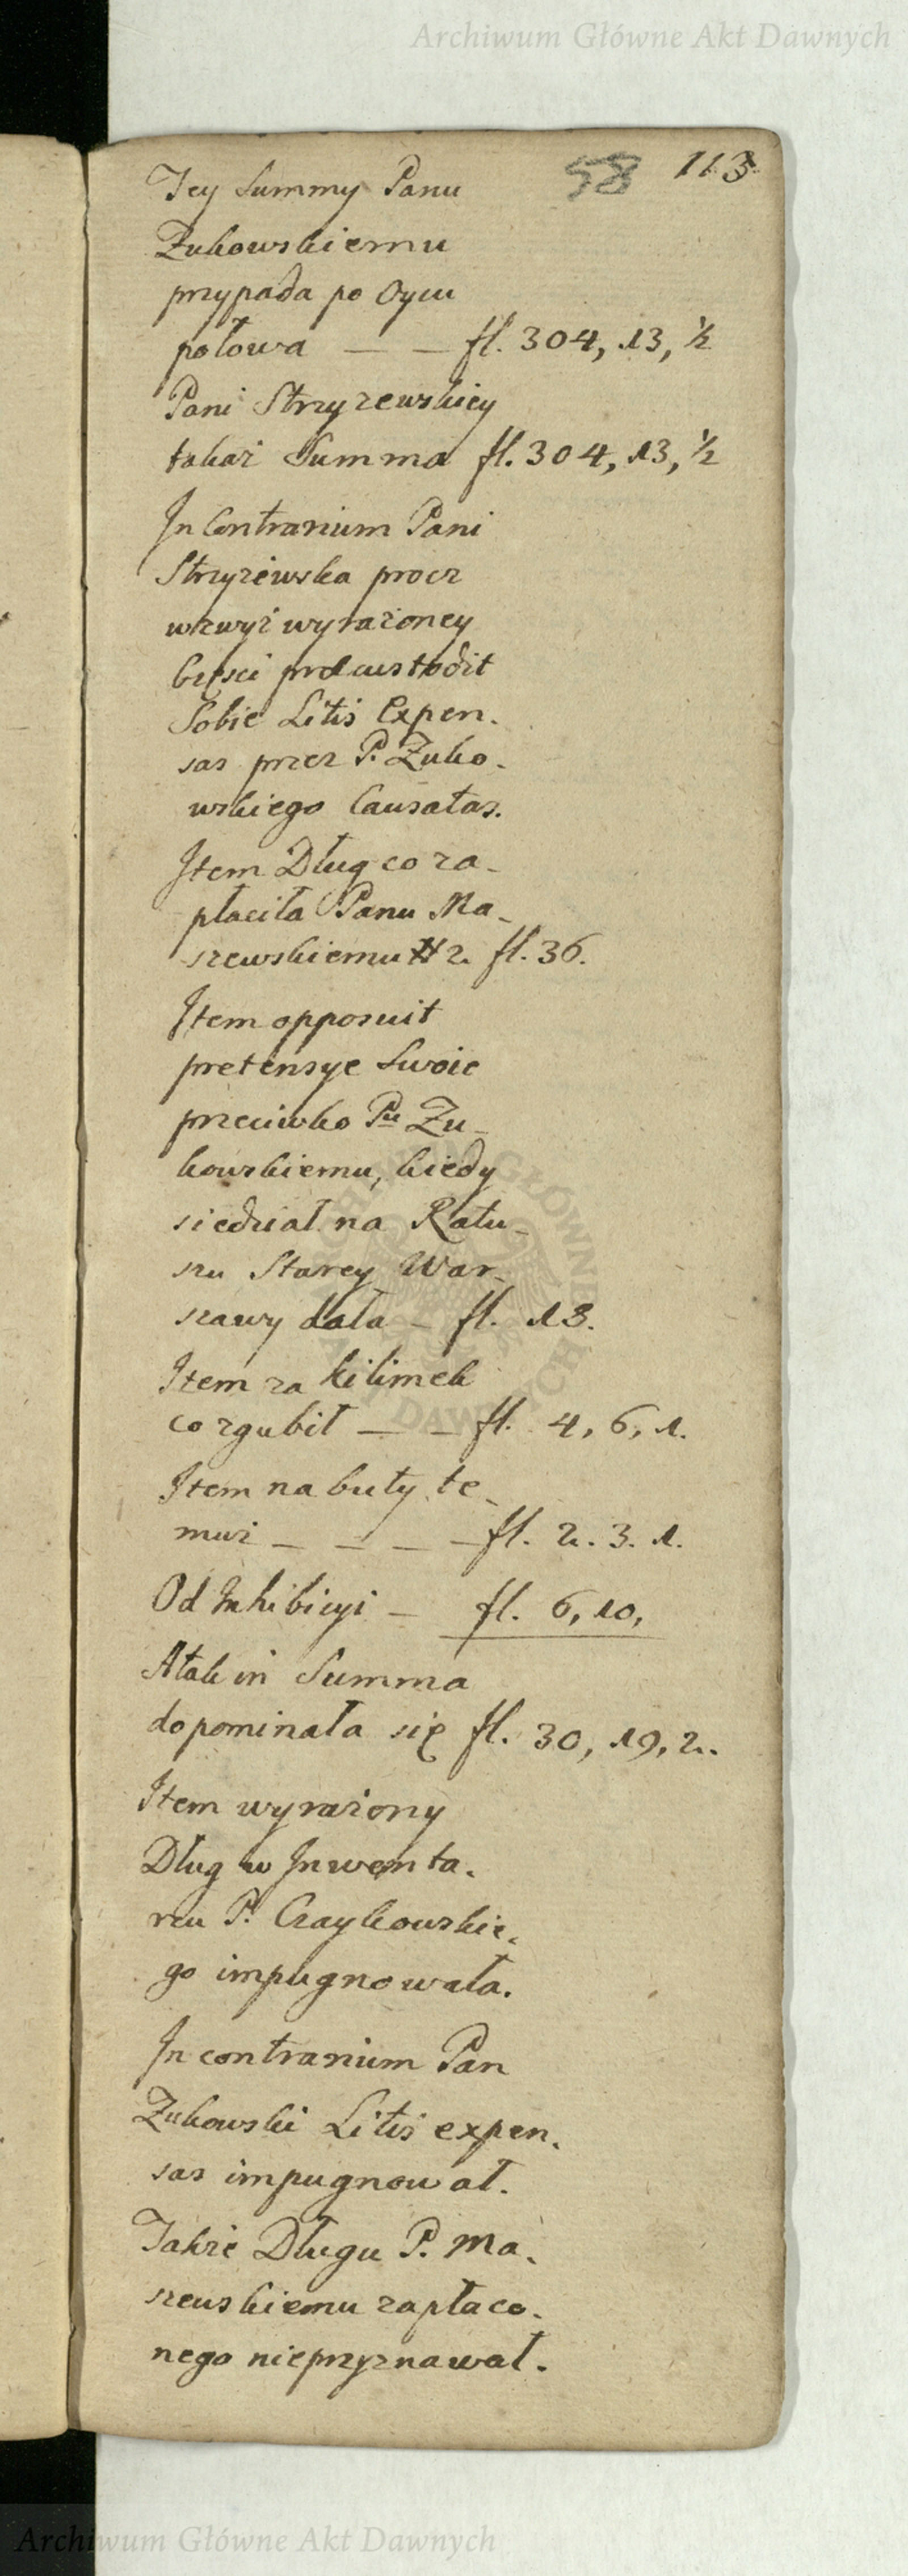 Archiwum Główne Akt Dawnych
58 113
Tey Summy Panu
Zukowskiemu
przypada po Oycu
połowa — — fl. 304, 13, ½
Pani Strzyzewskiey
takaż Summa fl. 304, 13, ½
In Contrarium Pani
Strzyżewska procz
wzwyż wyrażoney
Części præcustodit
Sobie Litis Expen-
sas przez P. Zuko-
wskiego Causatas.
Item Dług co za-
płaciła Panu Ma-
szewskiemu # 2. fl. 36.
Item opposuit
pretensye Swoie
przeciwko Pu Zu-
kowskiemu, kiedy
siedział na Ratu-
szu Starey War-
szawy dała — fl. 18.
Item za kilimek
co zgubił — — fl. 4, 6, 1.
Item na buty te-
muż — — — — fl. 2. 3. 1.
Od Inhibicyi — fl. 6, 10,
A tak in Summa
dopominała się fl. 30, 19, 2.
Item wyrażony
Dług w Inwenta-
rzu P. Czaykowskie-
go impugnowała.
In contrarium Pan
Zukowski Litis expen-
sas impugnował.
Także Długu P. Ma-
szewskiemu zapłaco-
nego nieprzyznawał.
Archiwum Główne Akt Dawnych